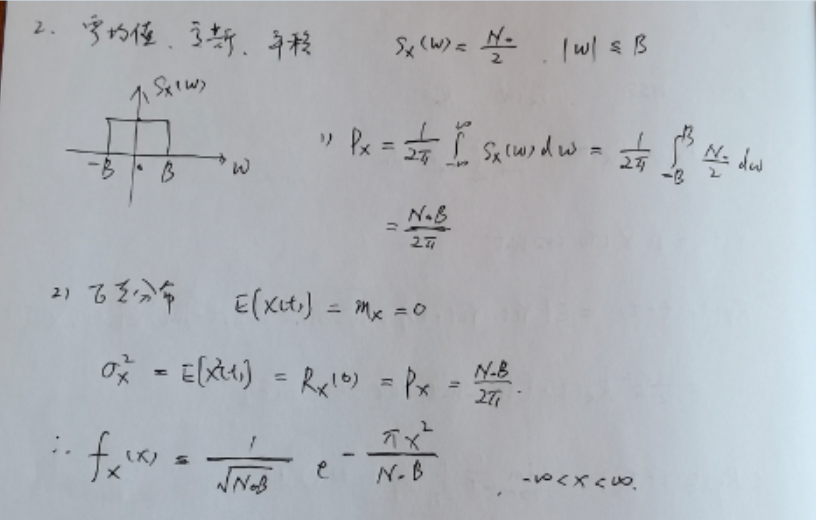 2. 零均值、高斯、平稳 Sₓ(ω) = N₀/2 . |ω| ≤ B
Sₓ(ω)
-B 0 B ω
1) Pₓ = 1/2π ∫_{-∞}^{∞} Sₓ(ω) dω = 1/2π ∫_{-B}^{B} N₀/2 dω
= N₀B/2π
2) 高斯分布 E[X(t)] = mₓ = 0
σₓ² = E[X²(t)] = Rₓ(0) = Pₓ = N₀B/2π .
∴ fₓ(x) = 1/√(N₀B) e^{-πx²/(N₀B)} , -∞ < x < ∞.